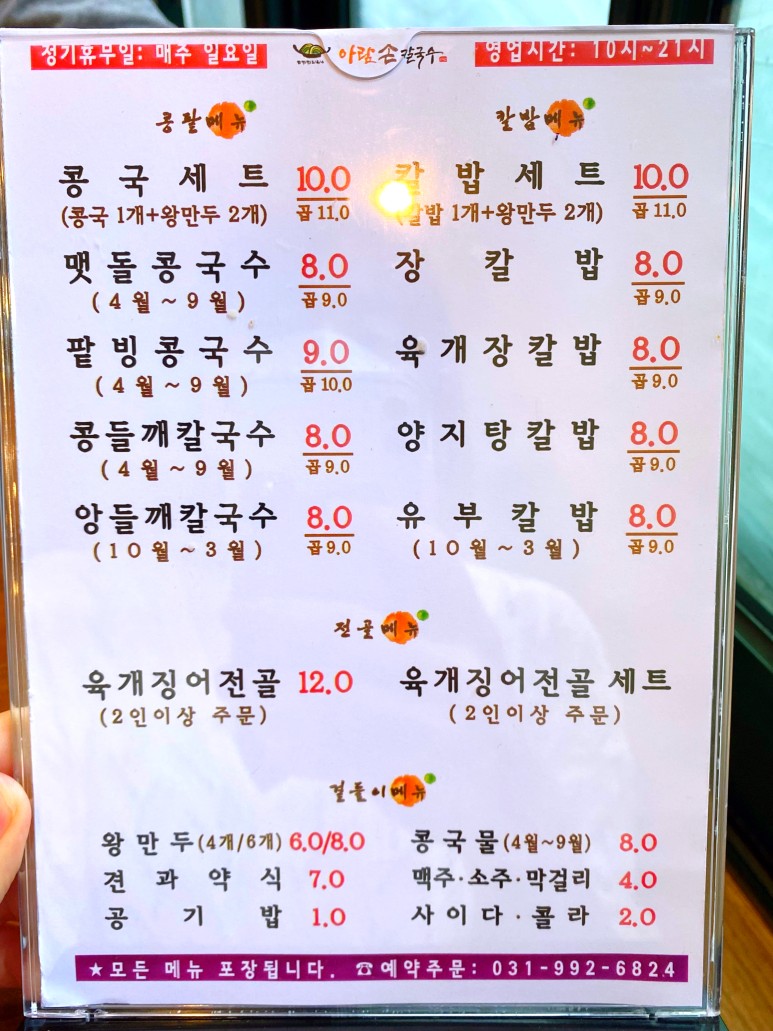 정기휴무일: 매주 일요일
아람 손 칼국수
영업시간: 10시~21시
콩팥메뉴
콩국세트 10.0
(콩국 1개+왕만두 2개) 곱 11.0
맷돌콩국수 8.0
(4월~9월) 곱 9.0
팥빙콩국수 9.0
(4월~9월) 곱 10.0
콩들깨칼국수 8.0
(4월~9월) 곱 9.0
앙들깨칼국수 8.0
(10월~3월) 곱 9.0
칼밥메뉴
칼밥세트 10.0
(칼밥 1개+왕만두 2개) 곱 11.0
장칼밥 8.0
곱 9.0
육개장칼밥 8.0
곱 9.0
양지탕칼밥 8.0
곱 9.0
유부칼밥 8.0
(10월~3월) 곱 9.0
전골메뉴
육개징어전골 12.0
(2인이상 주문)
육개징어전골 세트
(2인이상 주문)
곁들이메뉴
왕만두(4개/6개) 6.0/8.0
견과약식 7.0
공기밥 1.0
콩국물(4월~9월) 8.0
맥주·소주·막걸리 4.0
사이다·콜라 2.0
★모든 메뉴 포장됩니다. ☎예약주문: 031-992-6824